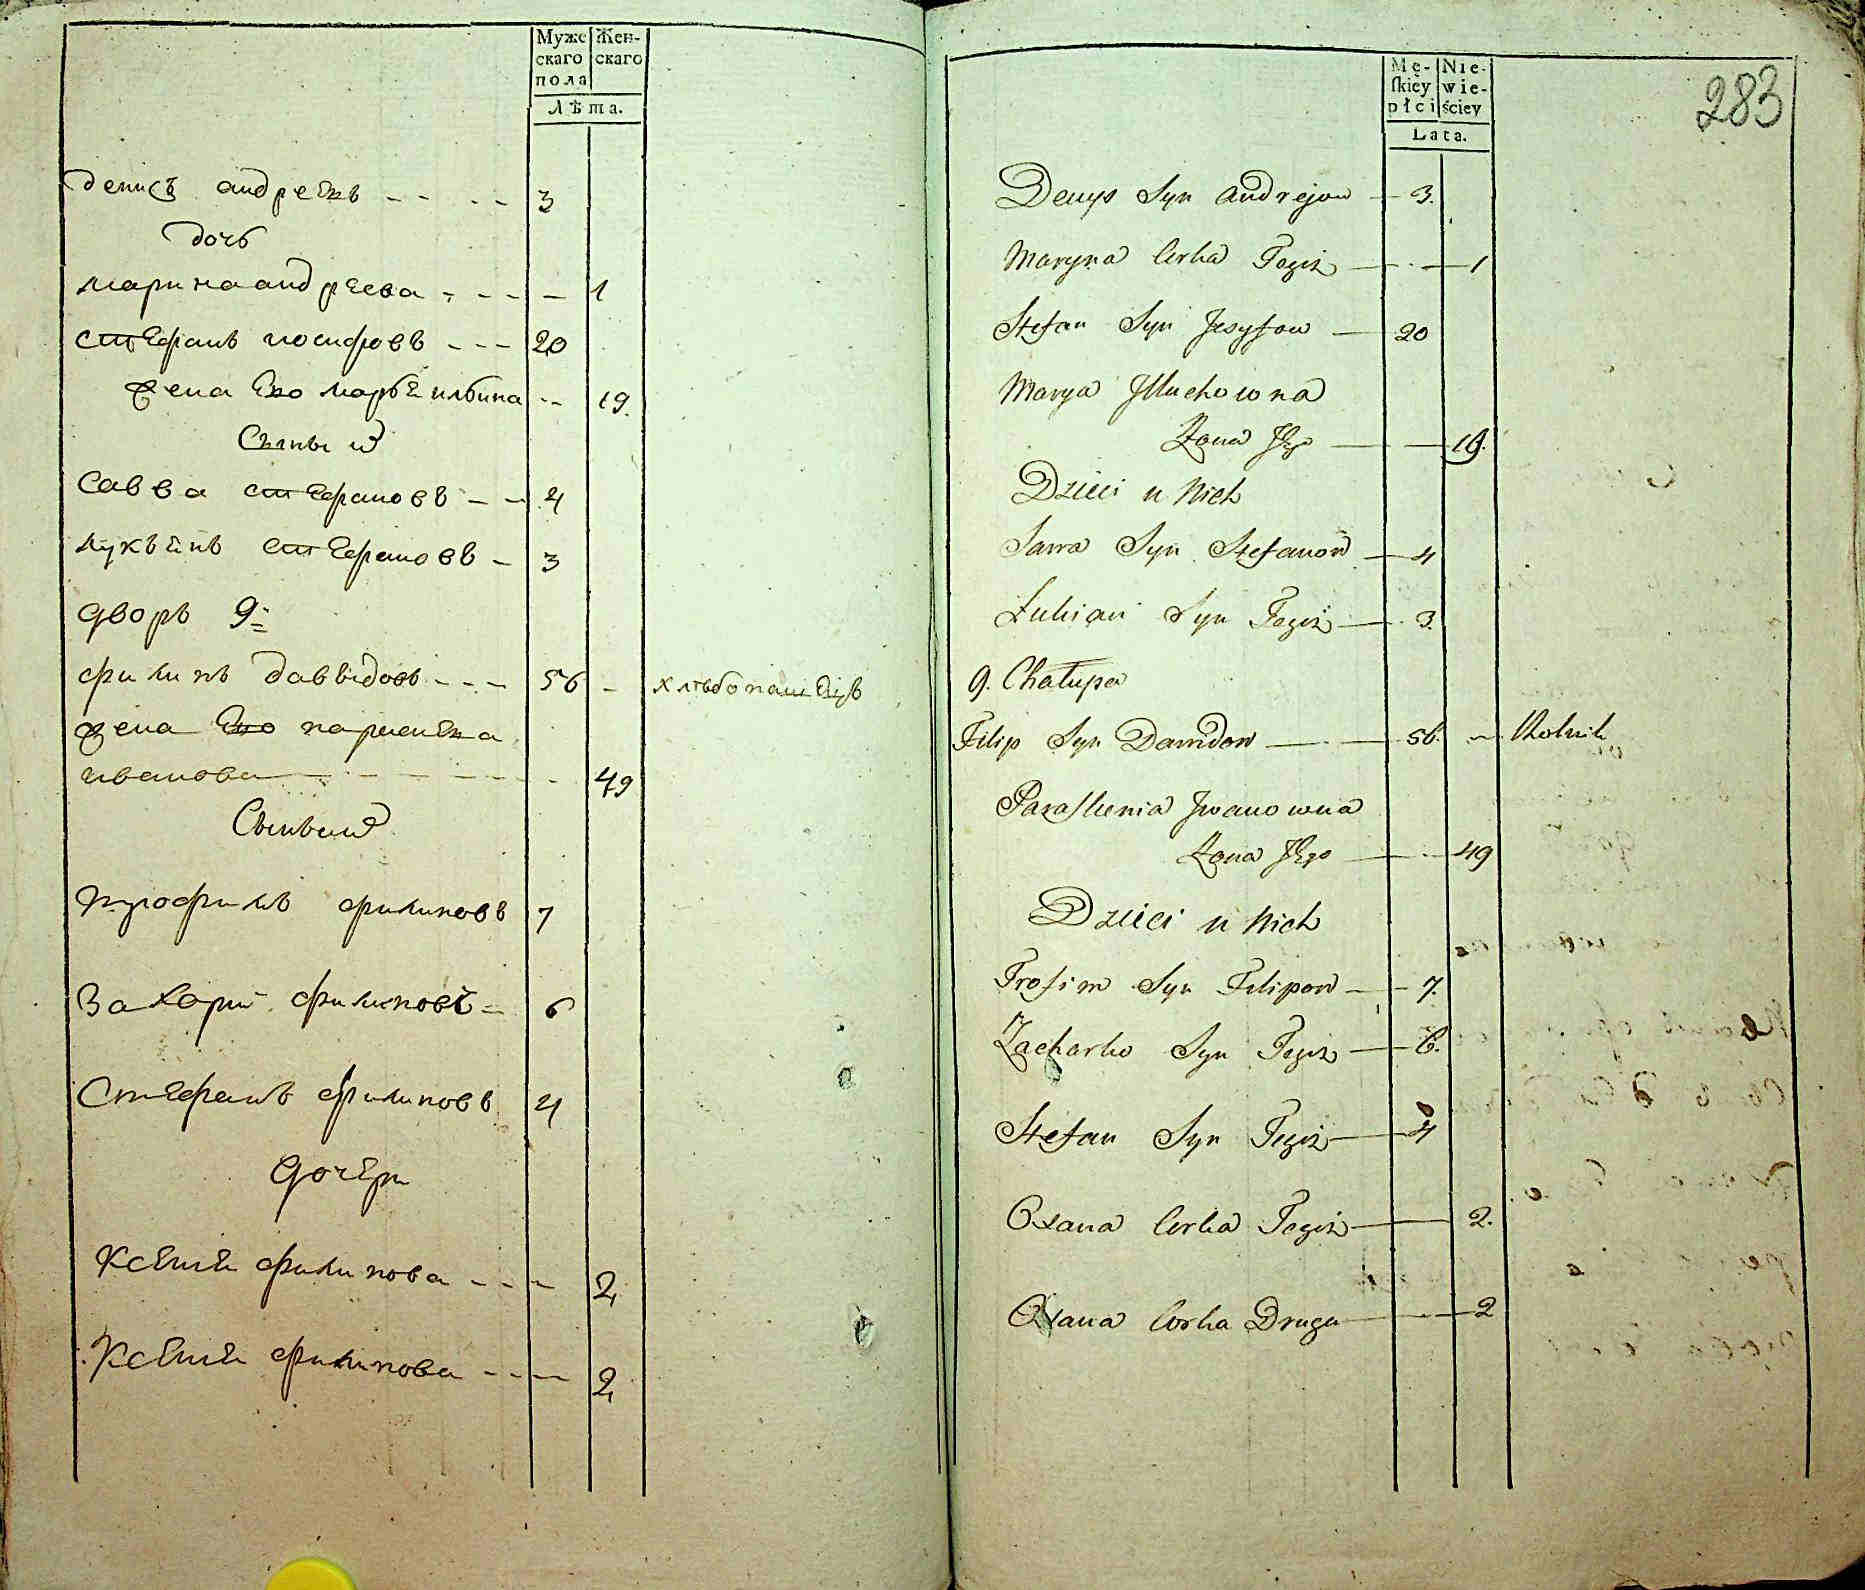 Муже
скаго
пола
Жен-
скаго
Лѣта.
Денисъ андреевъ 3
дочь
марина андреева 1
стефанъ иосифовъ 20
жена Его марья ильина 19.
Сыны ихъ
Савва стефановъ 4
лукьянъ стефановъ 3
дворъ 9:
филипъ давыдовъ 56 хлѣбопашецъ
жена Его парасковея
иванова 49
Сыны ихъ
трофимъ филиповъ 7
Захарий филиповъ 6
Стефанъ филиповъ 4
дочери
Ксения филипова 2
Ксения филипова 2
283
Mę-
skiey
płci
Nie-
wie-
ściey
Lata.
Denys Syn Andrejow 3.
Maryna Corka Tegoż 1
Stefan Syn Josyfow 20
Marya Illuchowna
Żona Jego 19.
Dzieci u Nich
Sawa Syn Stefanow 4
Łukian Syn Tegoż 3.
9. Chałupa
Filip Syn Dawidow 56. Rolnik
Paraskewia Jwanowna
Żona Jego 49
Dzieci u Nich
Trofim Syn Filipow 7.
Zacharko Syn Tegoż 6.
Stefan Syn Tegoż 4
Oxana Corka Tegoż 2.
Oxana Corka Druga 2